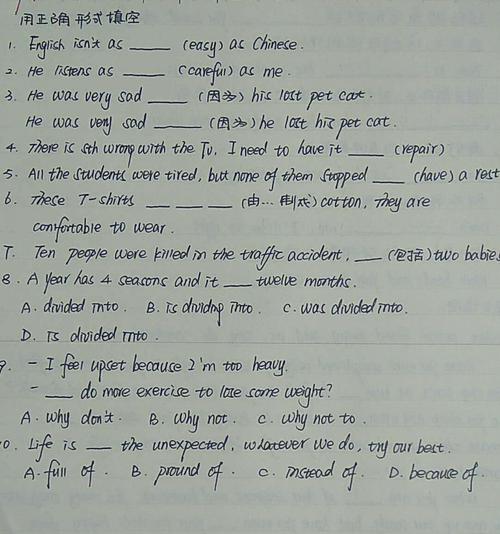 用正确形式填空
1. English isn't as ____ (easy) as Chinese.
2. He listens as ____ (careful) as me.
3. He was very sad ____ (因为) his lost pet cat.
He was very sad ____ (因为) he lost his pet cat.
4. There is sth wrong with the TV, I need to have it ____ (repair)
5. All the students were tired, but none of them stopped ____ (have) a rest
6. These T-shirts ____ ____ ____ (由…制成) cotton, They are
comfortable to wear.
7. Ten people were killed in the traffic accident, ____ (包括) two babies
8. A year has 4 seasons and it ____ twelve months.
A. divided into. B. is dividing into. C. was divided into.
D. is divided into.
9. - I feel upset because I'm too heavy.
- ____ do more exercise to lose some weight?
A. why don't. B. why not. C. why not to.
0. Life is ____ the unexpected, whatever we do, try our best.
A. full of. B. pround of. C. instead of. D. because of.